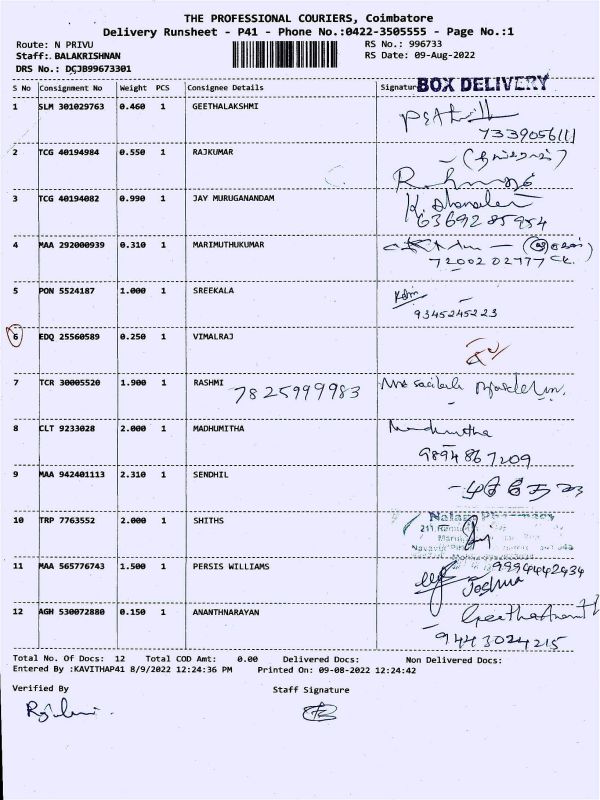 THE PROFESSIONAL COURIERS, Coimbatore
Delivery Runsheet - P41 - Phone No.:0422-3505555 - Page No.:1
Route: N PRIVU RS No.: 996733
Staff: BALAKRISHNAN RS Date: 09-Aug-2022
DRS No.: DCJB99673301
S No Consignment No Weight PCS Consignee Details Signature BOX DELIVERY
1 SLM 301029763 0.460 1 GEETHALAKSHMI
7339056111
2 TCG 40194984 0.550 1 RAJKUMAR
3 TCG 40194082 0.990 1 JAY MURUGANANDAM
6369285954
4 MAA 292000939 0.310 1 MARIMUTHUKUMAR
7200202777
5 PON 5524187 1.000 1 SREEKALA
9345245223
6 EDQ 25560589 0.250 1 VIMALRAJ
7 TCR 30005520 1.900 1 RASHMI 7825999983
8 CLT 9233028 2.000 1 MADHUMITHA Madhumitha
9894867209
9 MAA 942401113 2.310 1 SENDHIL
10 TRP 7763552 2.000 1 SHITHS
11 MAA 565776743 1.500 1 PERSIS WILLIAMS 9994442434
Joshua
12 AGH 530072880 0.150 1 ANANTHNARAYAN
9443024215
Total No. Of Docs: 12 Total COD Amt: 0.00 Delivered Docs: Non Delivered Docs:
Entered By :KAVITHAP41 8/9/2022 12:24:36 PM Printed On: 09-08-2022 12:24:42
Verified By Staff Signature